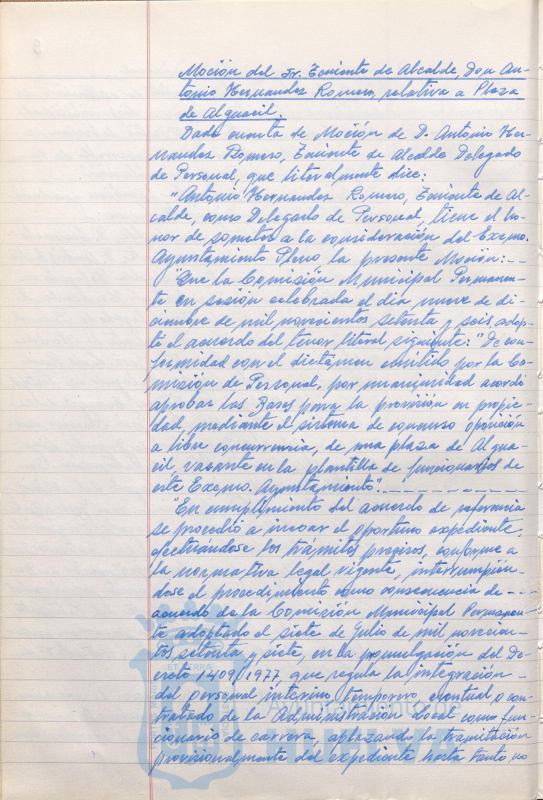 Moción del Sr. Teniente de Alcalde, Don An-
tonio Hernandez Romero, relativa a Plaza
de Alguacil.
Dada cuenta de Moción de D. Antonio Her-
nandez Romero, Teniente de Alcalde Delegado
de Personal, que literalmente dice:
"Antonio Hernandez Romero, Teniente de Al-
calde, como Delegado de Personal, tiene el ho-
nor de someter a la consideración del Excmo.
Ayuntamiento Pleno la presente Moción:--
"Que la Comisión Municipal Permanen-
te en sesión celebrada el día nueve de di-
ciembre de mil novecientos setenta y seis, adop-
tó el acuerdo del tenor literal siguiente: "De con-
formidad con el dictámen emitido por la Co-
misión de Personal, por unanimidad acordó
aprobar las Bases para la provisión en propie-
dad, mediante el sistema de concurso oposición
a libre concurrencia, de una plaza de Algua-
cil, vacante en la plantilla de funcionarios de
este Excmo. Ayuntamiento".----------
"En cumplimiento del acuerdo de referencia
se procedió a incoar el oportuno expediente,
efectuandose los trámites precisos, conforme a
la normativa legal vigente, interrumpién-
dose el procedimiento como consecuencia de ---
acuerdo de la Comisión Municipal Permanen-
te adoptado el siete de Julio de mil novecien-
tos setenta y siete, en la promulgación del De-
creto 1409/1977, que regula la integración -
del personal interino, temporero, eventual o con-
tratado de la Administración Local como fun-
cionario de carrera, aplazando la tramitación
provisionalmente del expediente hasta tanto no
Ayuntamiento de
HUELVA